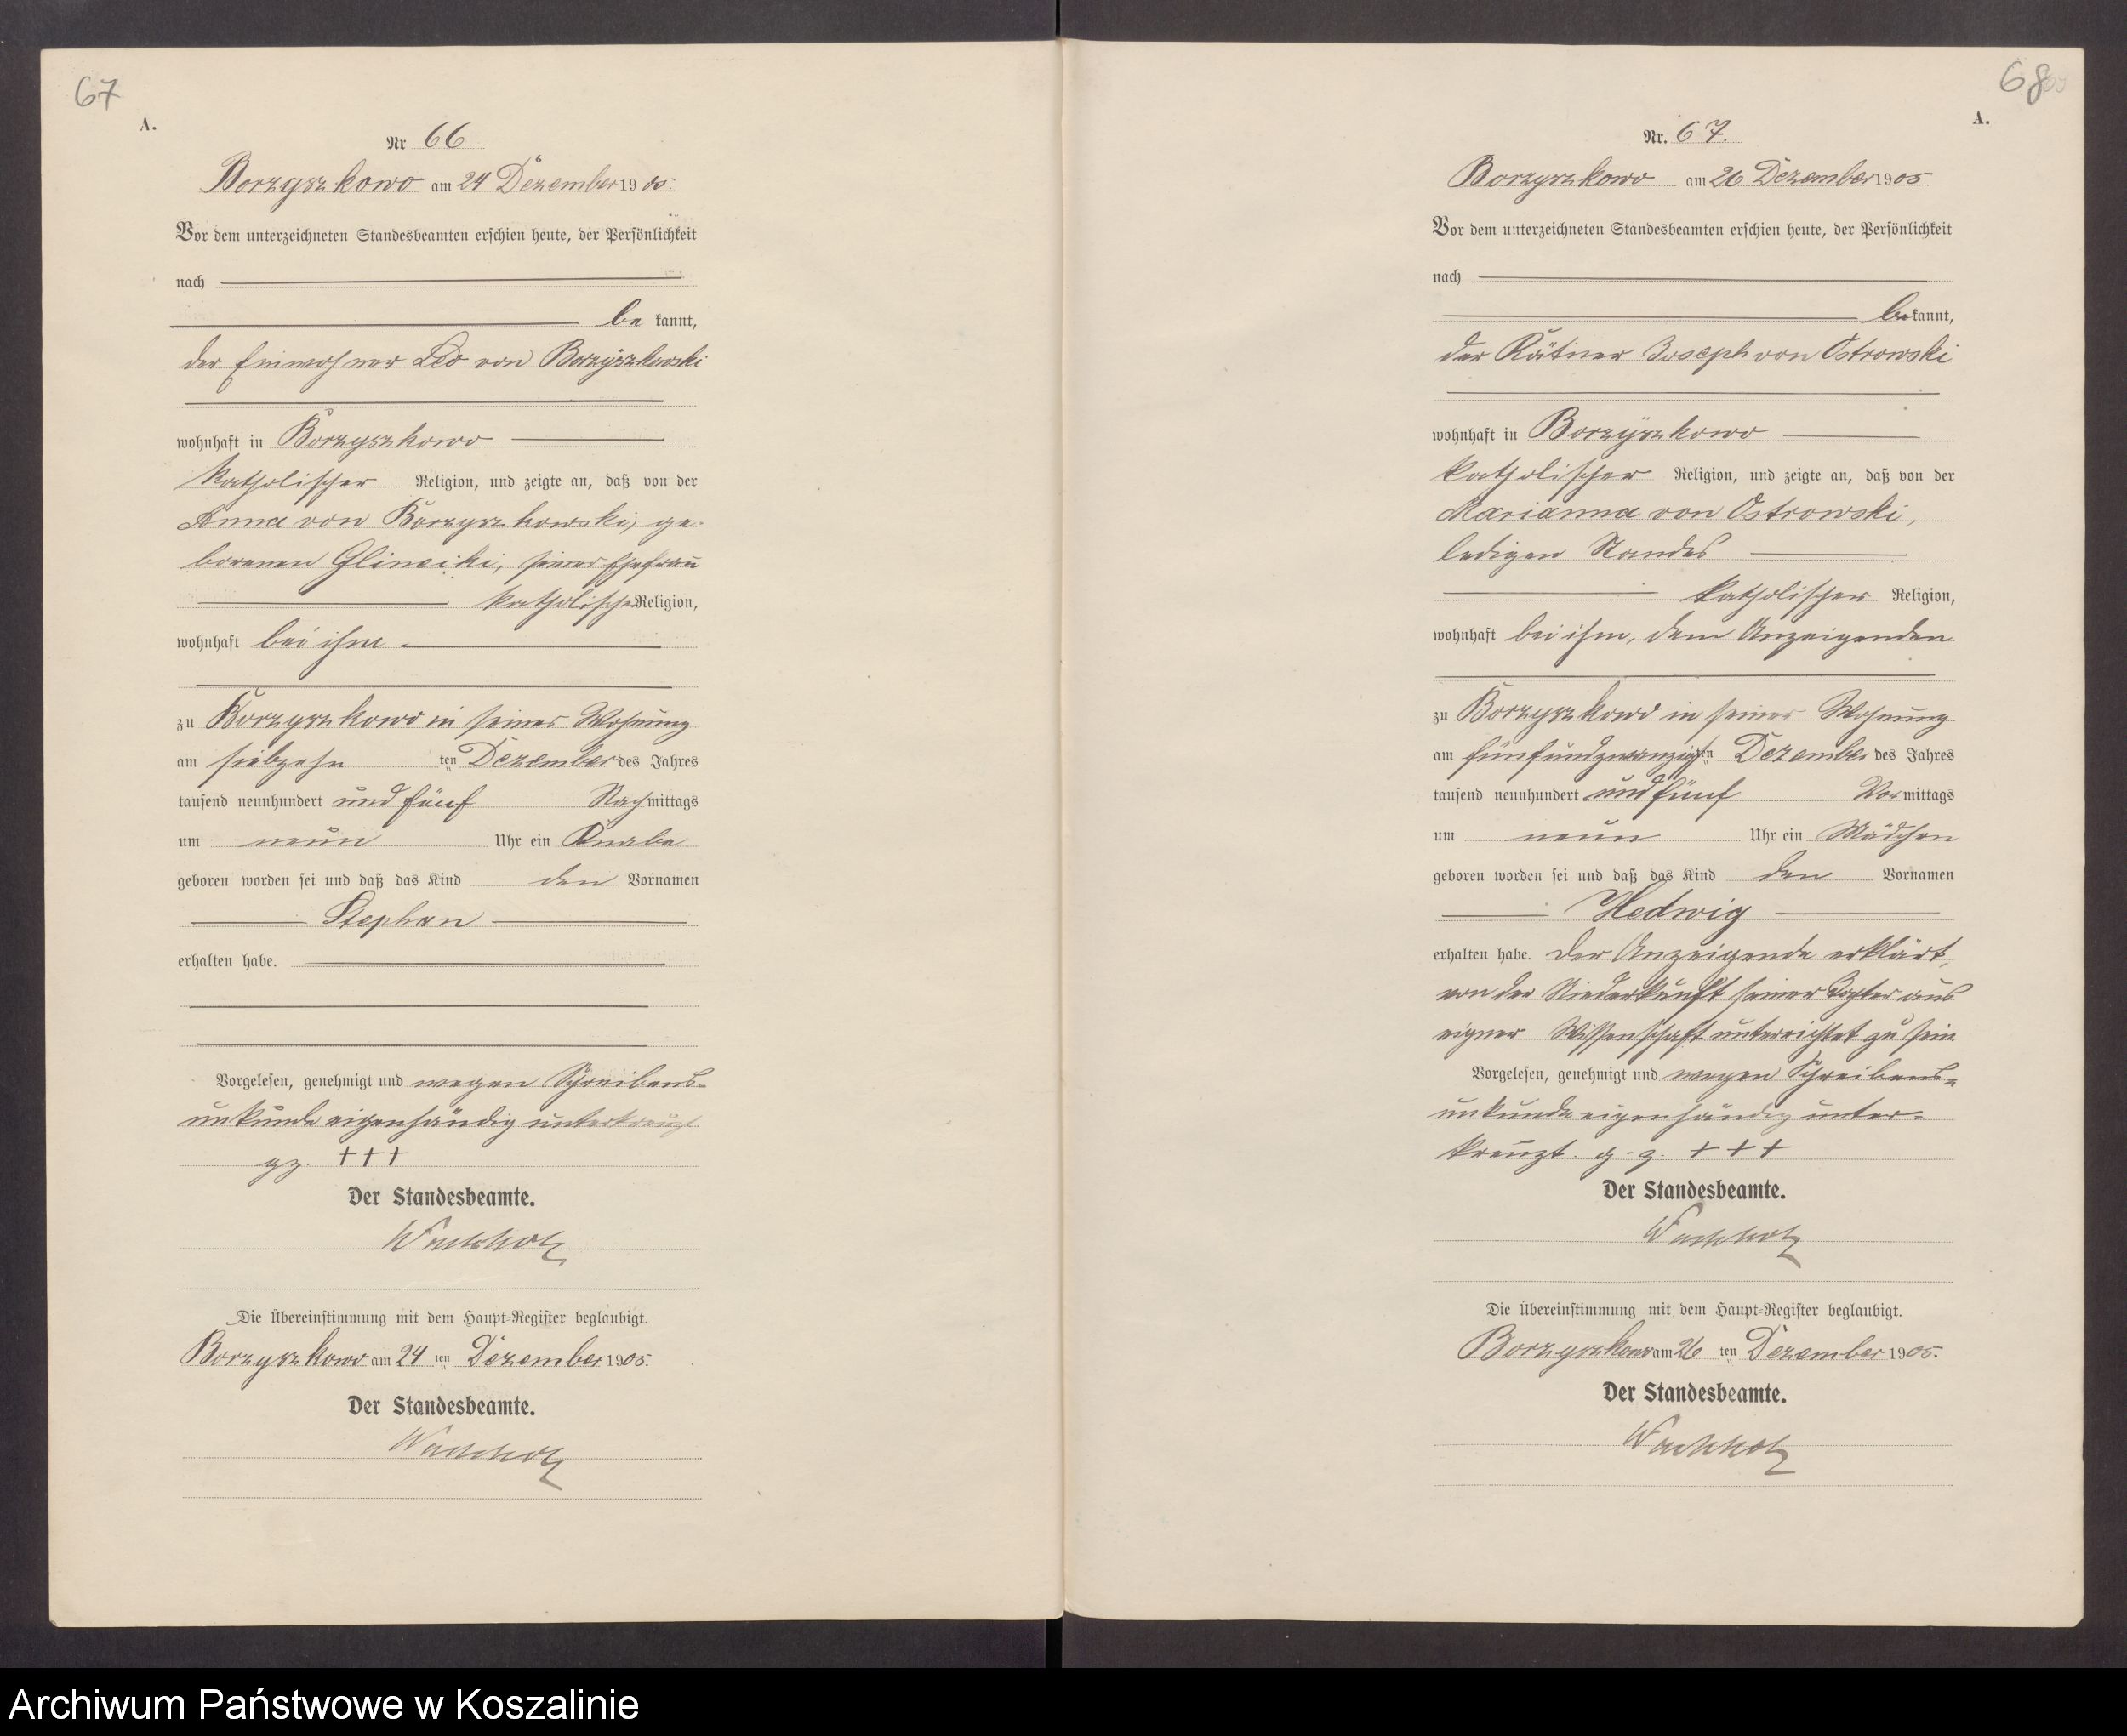 67
A.
Nr 66
Borzyszkowo am 24 Dezember 1905.
Vor dem unterzeichneten Standesbeamten erschien heute, der Persönlichkeit
nach
be kannt,
der Einwohner Leo von Borzyszkowski
wohnhaft in Borzyszkowo
katholischer Religion, und zeigte an, daß von der
Anna von Borzyszkowski, ge-
borenen Glinciki, seiner Ehefrau
katholischer Religion,
wohnhaft bei ihm
zu Borzyszkowo in seiner Wohnung
am siebzehn ten Dezember des Jahres
tausend neunhundert und fünf Nachmittags
um neun Uhr ein Knabe
geboren worden sei und daß das Kind den Vornamen
Stephan
erhalten habe.
Vorgelesen, genehmigt und wegen Schreibens-
unkunde eigenhändig unterkreuzt
gz. +++
Der Standesbeamte.
Wachholz
Die Übereinstimmung mit dem Haupt-Register beglaubigt.
Borzyszkowo am 24 ten Dezember 1905.
Der Standesbeamte.
Wachholz
68
A.
Nr. 67.
Borzyszkowo am 26 Dezember 1905
Vor dem unterzeichneten Standesbeamten erschien heute, der Persönlichkeit
nach
be kannt,
der Kätner Joseph von Ostrowski
wohnhaft in Borzyszkowo
katholischer Religion, und zeigte an, daß von der
Marianna von Ostrowski,
ledigen Standes
katholischer Religion,
wohnhaft bei ihm, dem Anzeigenden
zu Borzyszkowo in seiner Wohnung
am fünfundzwanzigsten Dezember des Jahres
tausend neunhundert und fünf Vormittags
um neun Uhr ein Mädchen
geboren worden sei und daß das Kind den Vornamen
Hedwig
erhalten habe. Der Anzeigende erklärt,
von der Niederkunft seiner Tochter aus
eigner Wissenschaft unterrichtet zu sein.
Vorgelesen, genehmigt und wegen Schreibens-
unkunde eigenhändig unter-
kreuzt. g. z. +++
Der Standesbeamte.
Wachholz
Die Übereinstimmung mit dem Haupt-Register beglaubigt.
Borzyszkowo am 26 ten Dezember 1905.
Der Standesbeamte.
Wachholz
Archiwum Państwowe w Koszalinie